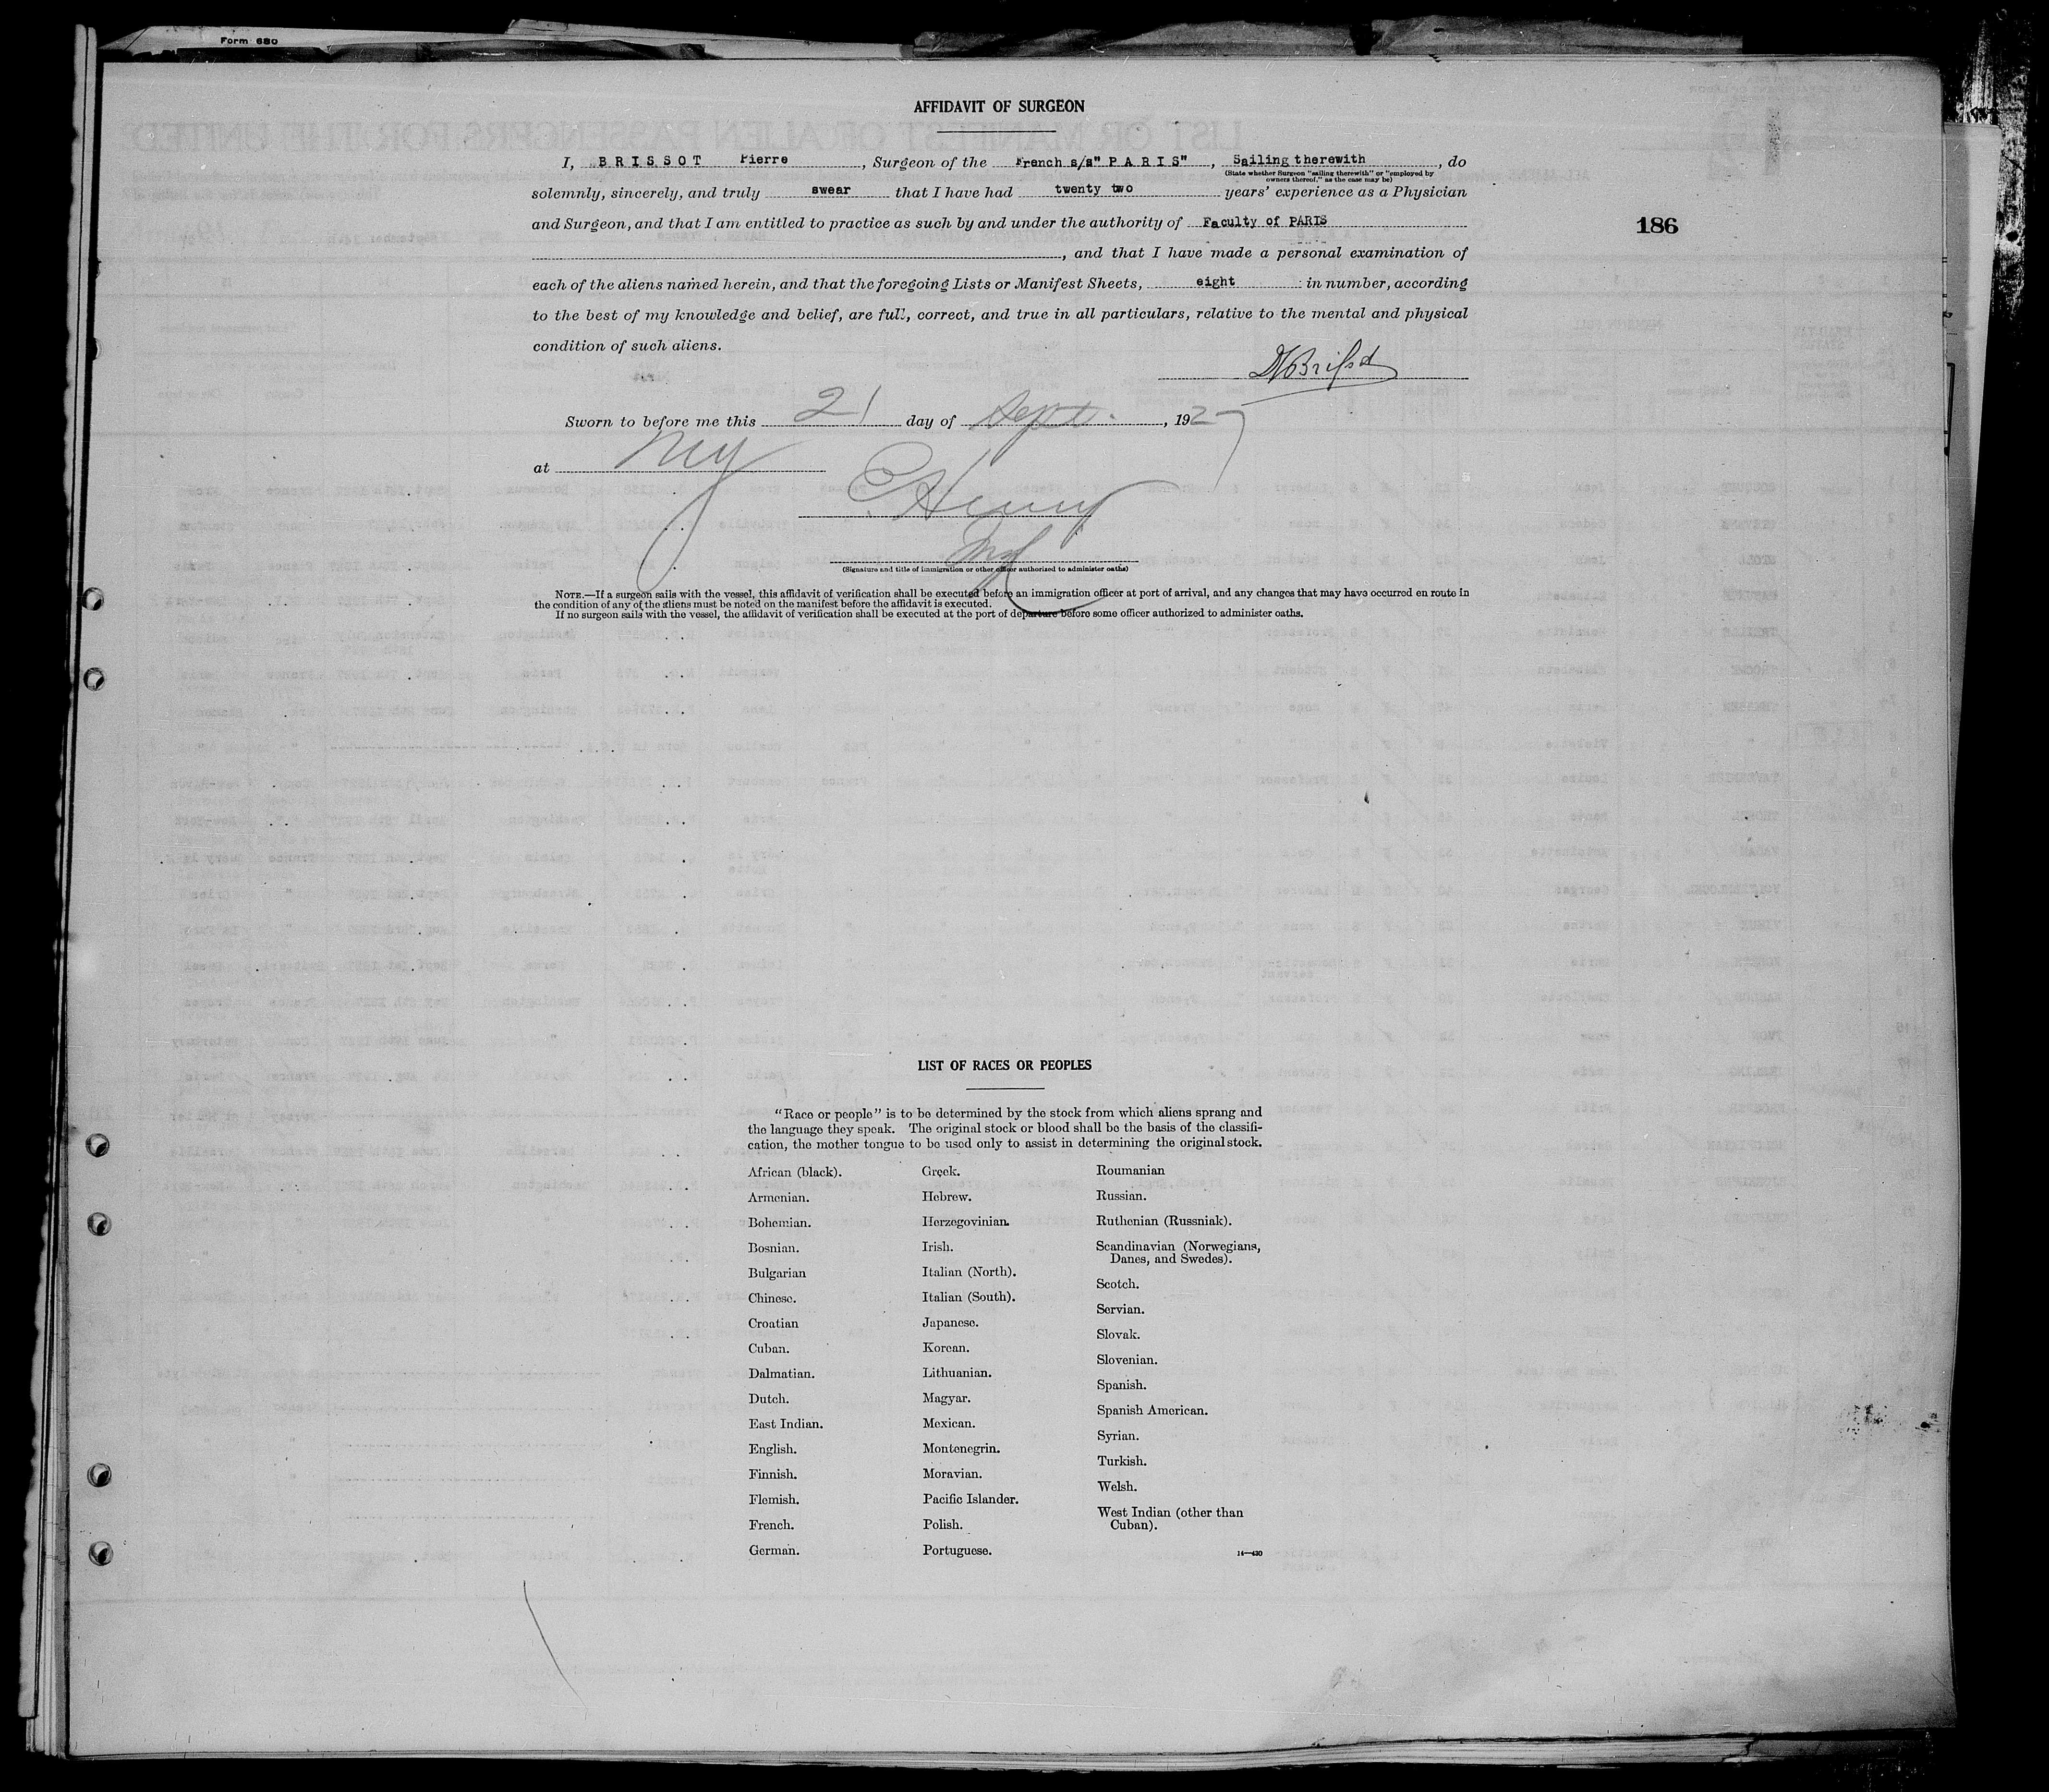 Form 680
AFFIDAVIT OF SURGEON
I, BRISSOT Pierre, Surgeon of the French s/s "PARIS", Sailing therewith, do
(State whether Surgeon "sailing therewith" or "employed by
owners thereof," as the case may be)
solemnly, sincerely, and truly swear that I have had twenty two years' experience as a Physician
and Surgeon, and that I am entitled to practice as such by and under the authority of Faculty of PARIS
186
, and that I have made a personal examination of
each of the aliens named herein, and that the foregoing Lists or Manifest Sheets, eight in number, according
to the best of my knowledge and belief, are full, correct, and true in all particulars, relative to the mental and physical
condition of such aliens.
Sworn to before me this 21 day of Sept., 1927
at NY
(Signature and title of immigration or other officer authorized to administer oaths)
NOTE.—If a surgeon sails with the vessel, this affidavit of verification shall be executed before an immigration officer at port of arrival, and any changes that may have occurred en route in
the condition of any of the aliens must be noted on the manifest before the affidavit is executed.
If no surgeon sails with the vessel, the affidavit of verification shall be executed at the port of departure before some officer authorized to administer oaths.
LIST OF RACES OR PEOPLES
"Race or people" is to be determined by the stock from which aliens sprang and
the language they speak. The original stock or blood shall be the basis of the classifi-
cation, the mother tongue to be used only to assist in determining the original stock.
African (black).
Armenian.
Bohemian.
Bosnian.
Bulgarian
Chinese.
Croatian
Cuban.
Dalmatian.
Dutch.
East Indian.
English.
Finnish.
Flemish.
French.
German.
Greek.
Hebrew.
Herzegovinian.
Irish.
Italian (North).
Italian (South).
Japanese.
Korean.
Lithuanian.
Magyar.
Mexican.
Montenegrin.
Moravian.
Pacific Islander.
Polish.
Portuguese.
Roumanian
Russian.
Ruthenian (Russniak).
Scandinavian (Norwegians,
Danes, and Swedes).
Scotch.
Servian.
Slovak.
Slovenian.
Spanish.
Spanish American.
Syrian.
Turkish.
Welsh.
West Indian (other than
Cuban).
14—430